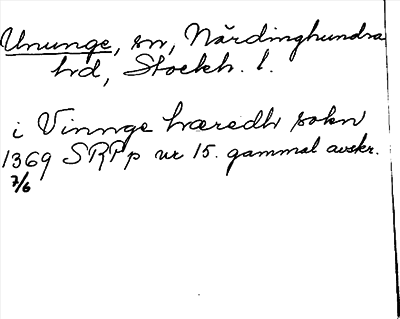 Ununge, sn, Närdinghundra
hd, Stockh. l.
i Vinnge hæredh sokn
1369 SRPp nr 15. gammal avskr.
7/6